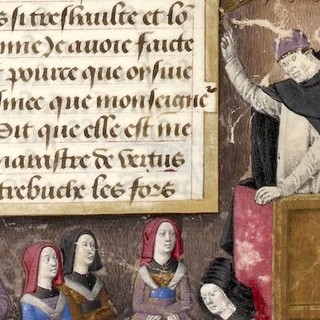 s si treshaulte et lo
me Je auoie faicte
pource que on suie
mee que monseigne
Dit que elle est me
marastre de vertus
trebuche les fors